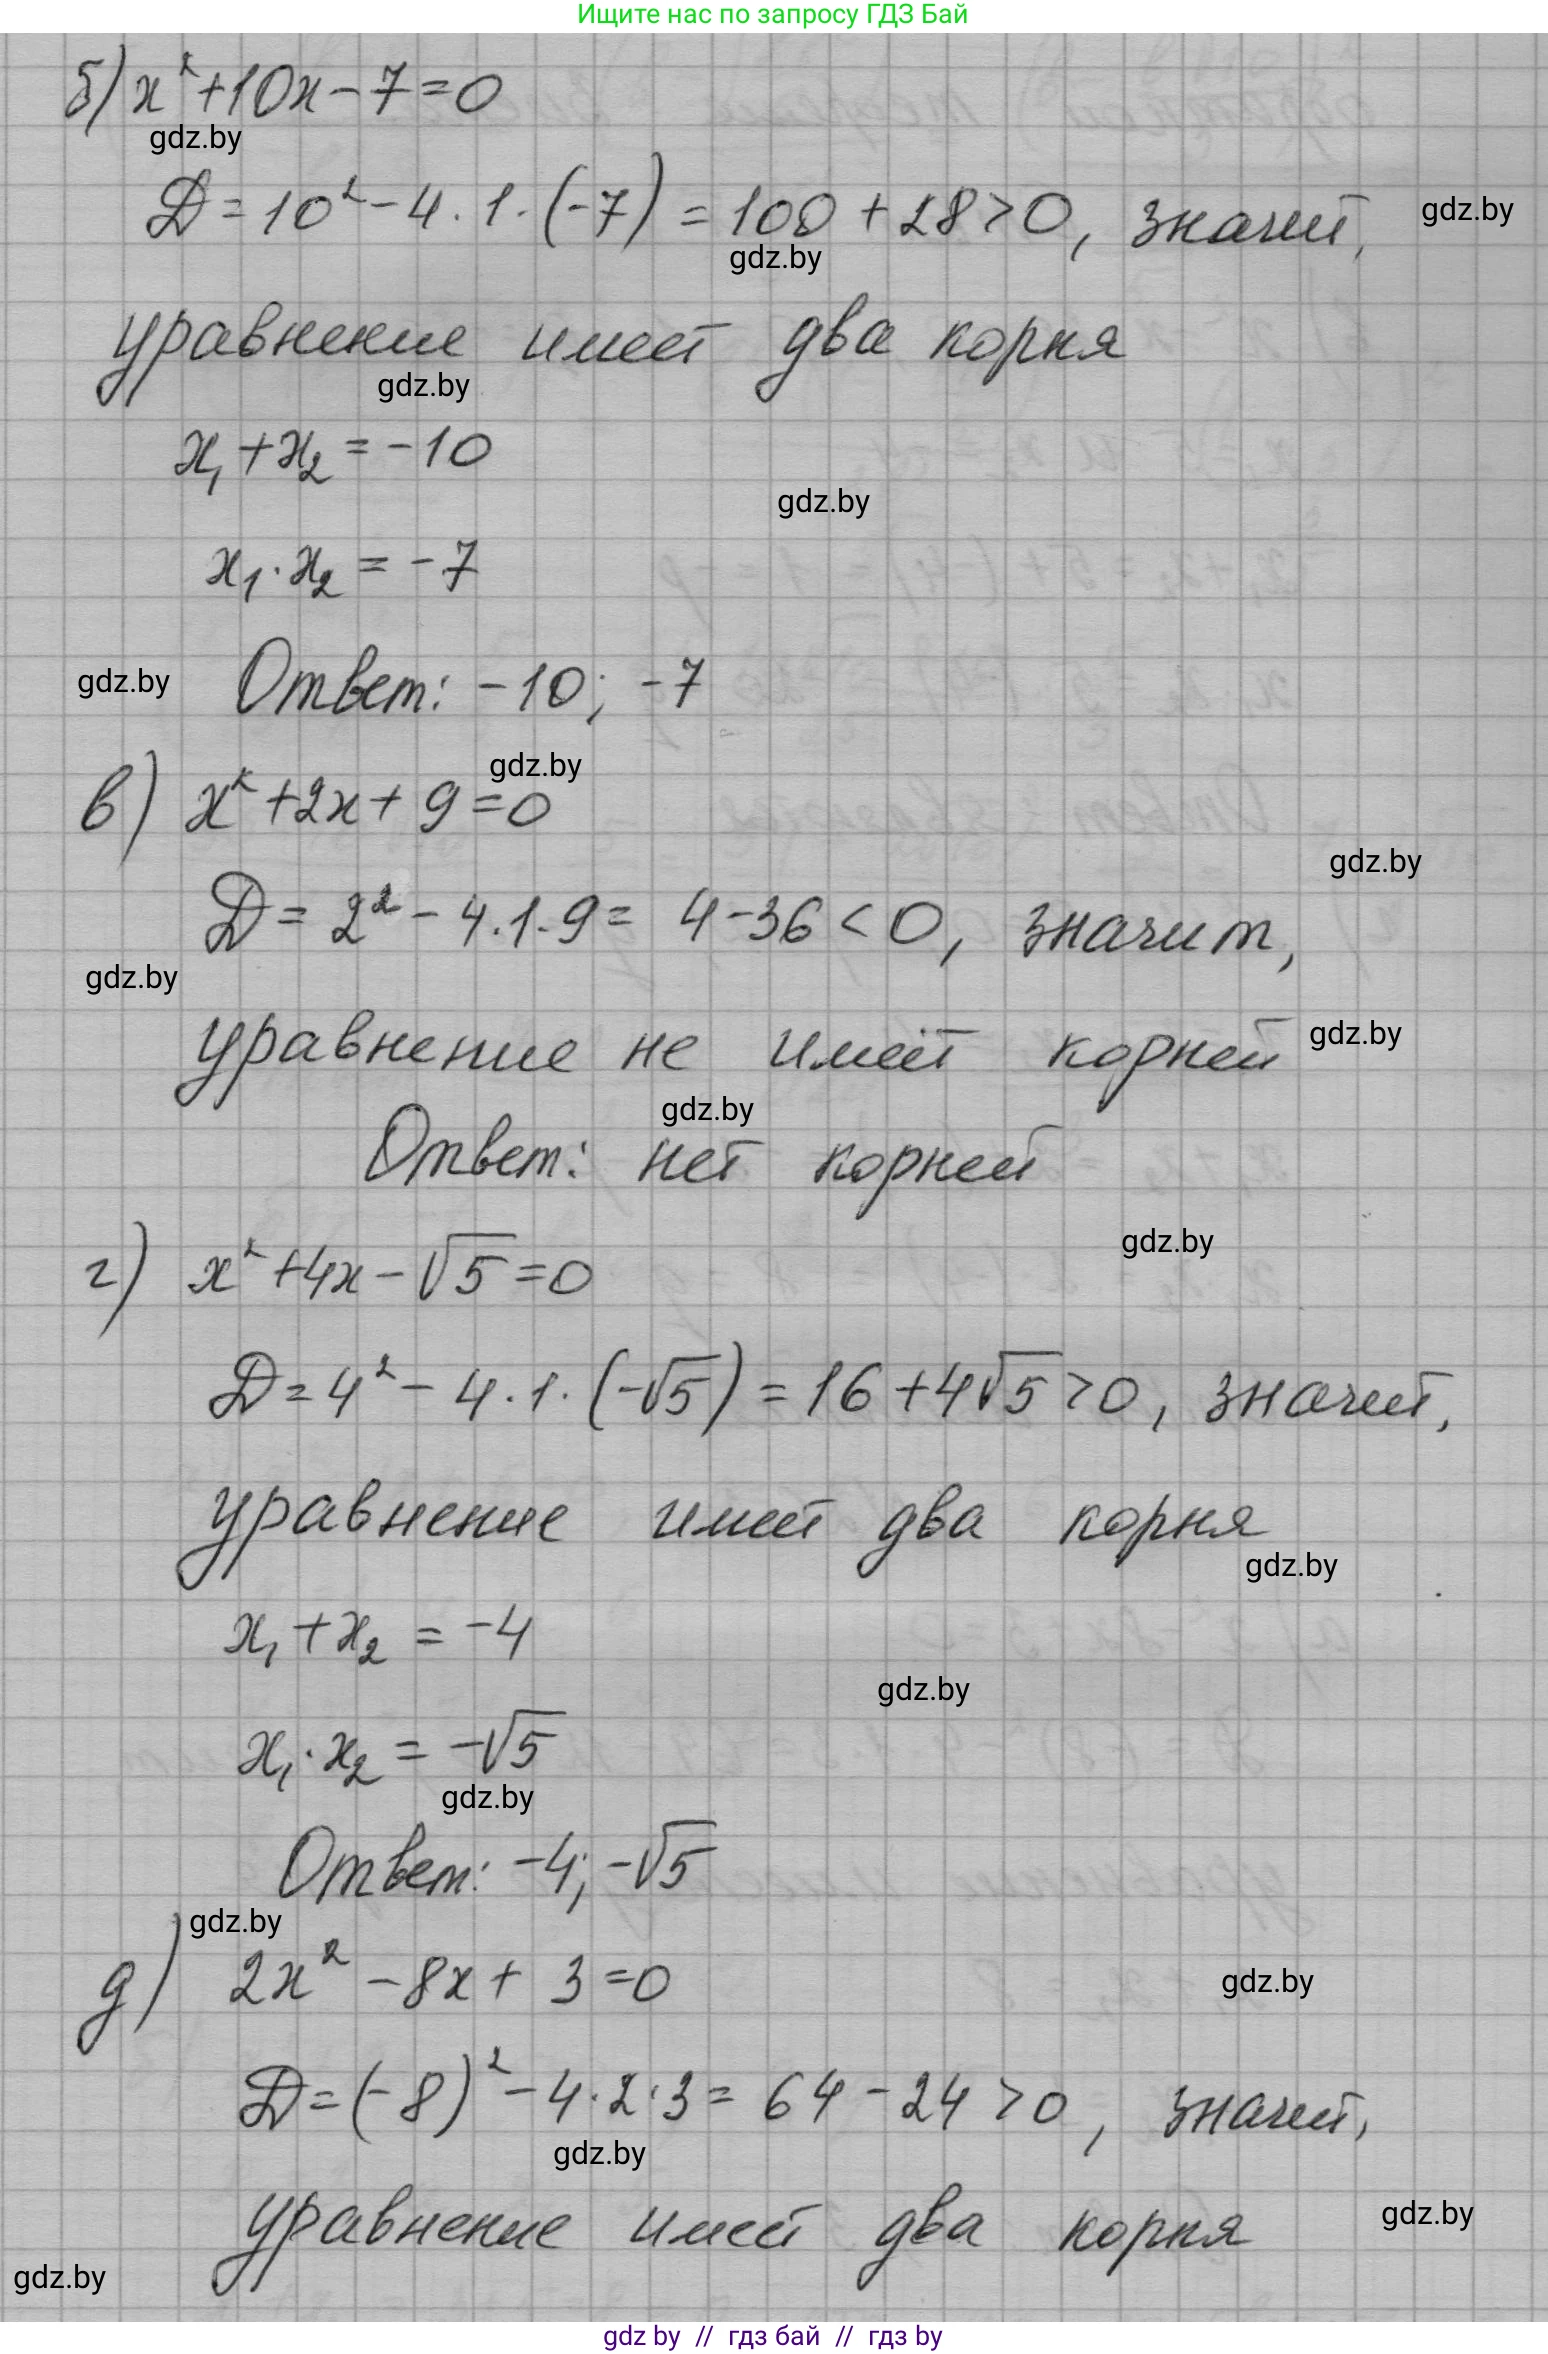 Ищите нас по запросу ГДЗ Бай
б) x² + 10x - 7 = 0
gdz.by
D = 10² - 4 · 1 · (-7) = 100 + 28 > 0, значит,
gdz.by
gdz.by
уравнение имеет два корня
gdz.by
x₁ + x₂ = -10
gdz.by
x₁ · x₂ = -7
gdz.by
Ответ: -10; -7
gdz.by
в) x² + 2x + 9 = 0
gdz.by
D = 2² - 4 · 1 · 9 = 4 - 36 < 0, значит,
gdz.by
уравнение не имеет корней
gdz.by
gdz.by
Ответ: нет корней
gdz.by
г) x² + 4x - √5 = 0
D = 4² - 4 · 1 · (-√5) = 16 + 4√5 > 0, значит,
уравнение имеет два корня
gdz.by
x₁ + x₂ = -4
gdz.by
x₁ · x₂ = -√5
gdz.by
Ответ: -4; -√5
gdz.by
д) 2x² - 8x + 3 = 0
gdz.by
D = (-8)² - 4 · 2 · 3 = 64 - 24 > 0, значит,
gdz.by
уравнение имеет два корня
gdz.by
gdz.by
gdz by // гдз бай // гдз by